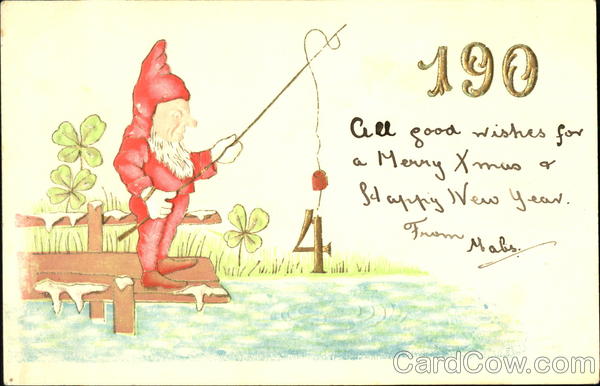 190
All good wishes for
a Merry Xmas &
Happy New Year.
From
Mabs.
4
CardCow.com